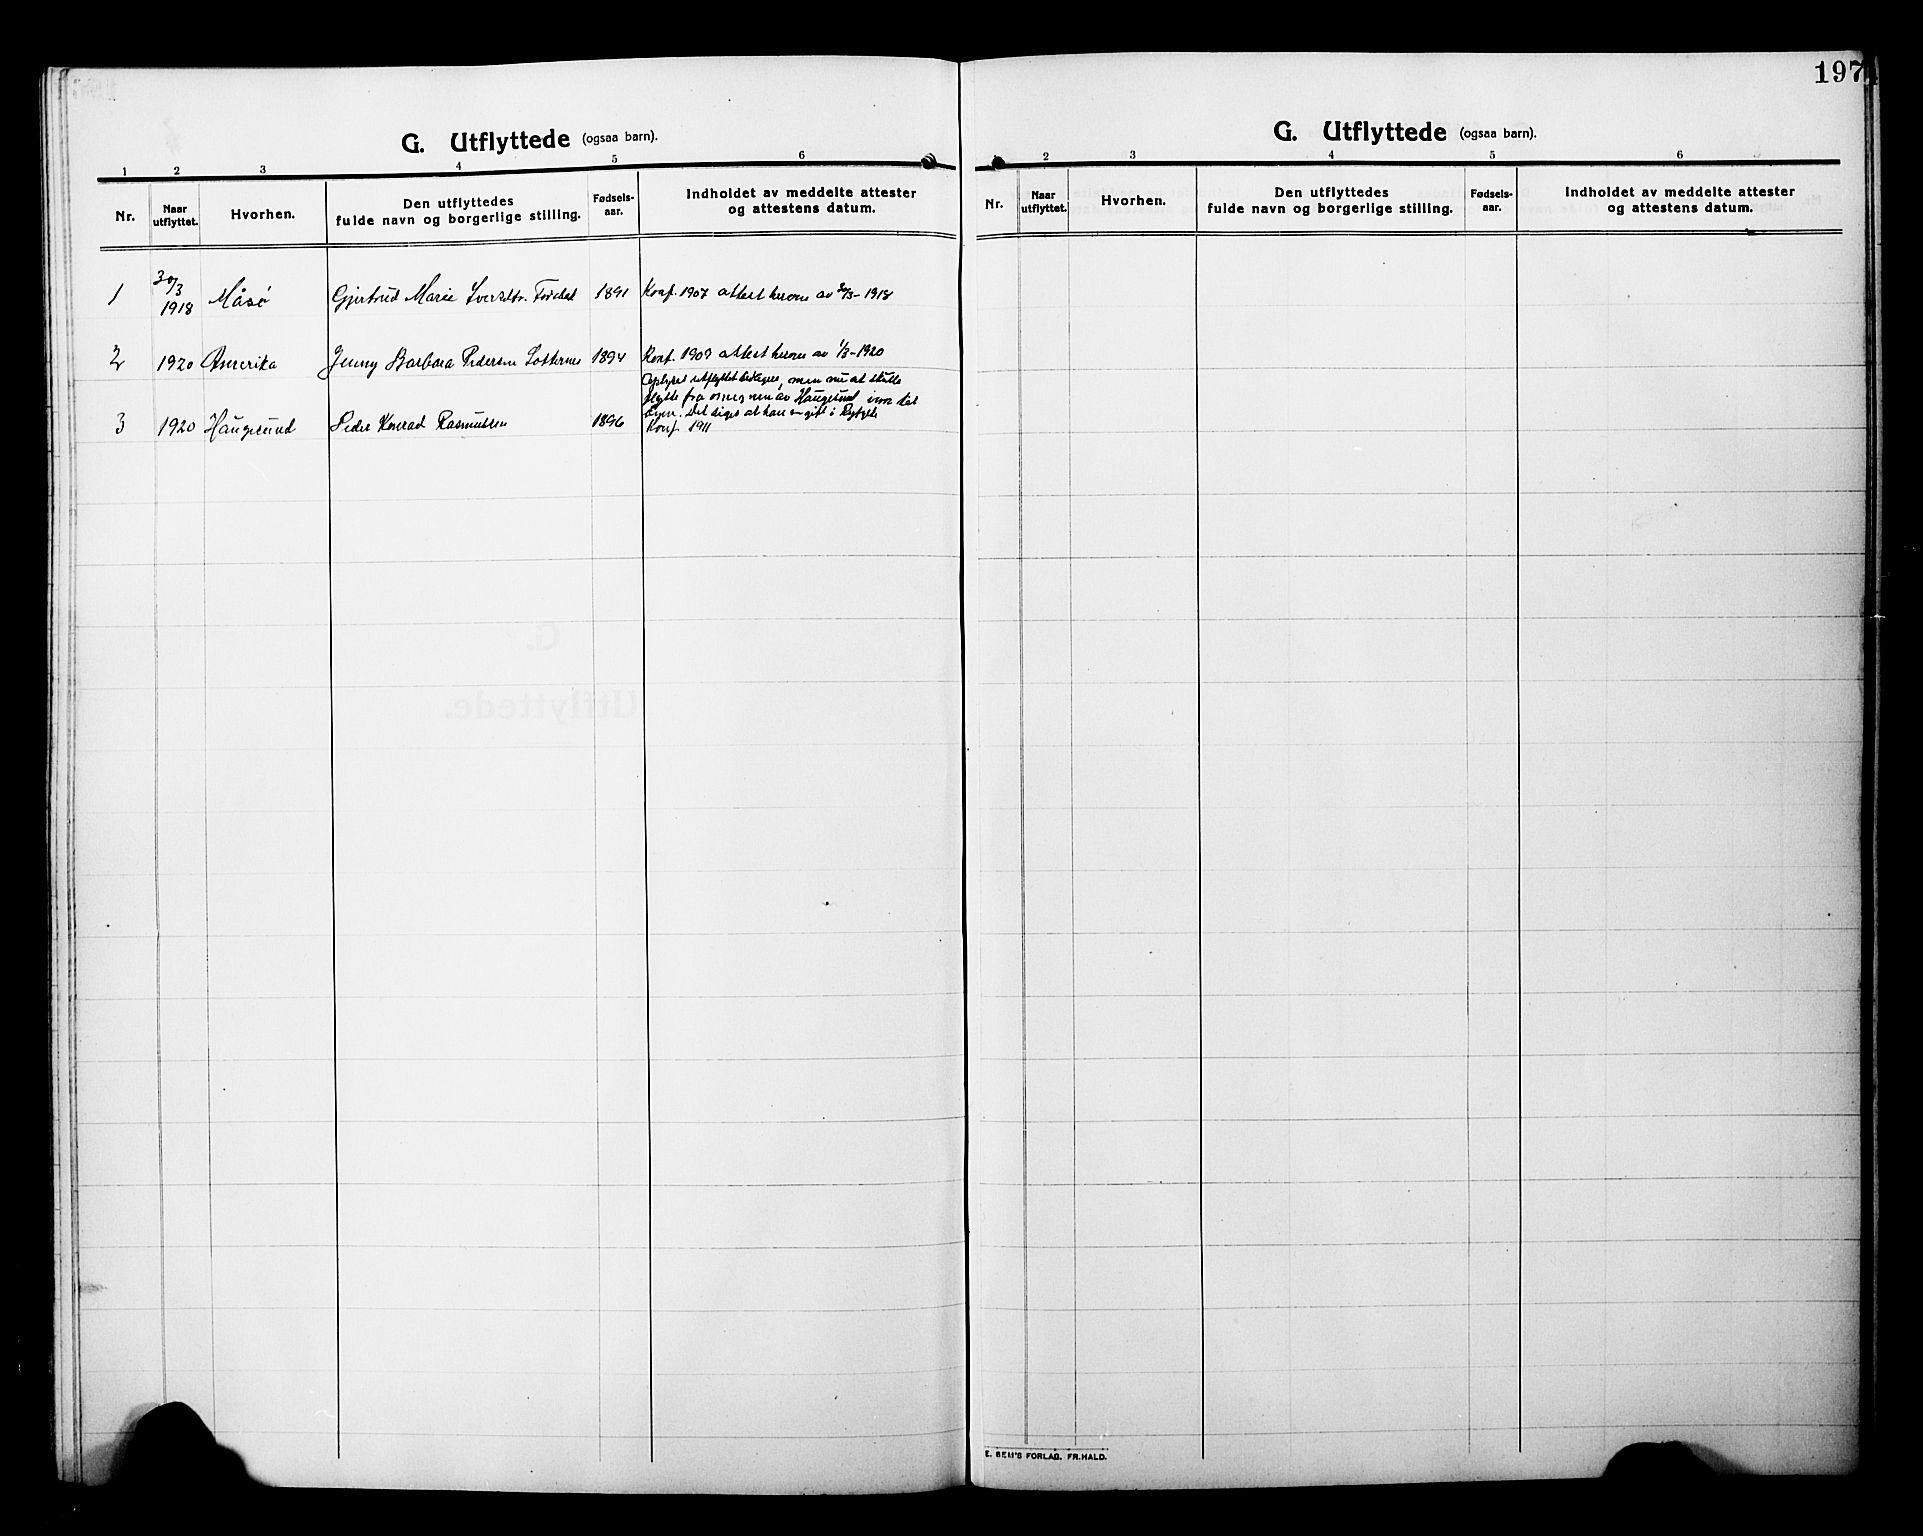 G. Utflyttede (ogsaa barn).
1 2 3 4 5 6
Nr. Naar utflyttet. Hvorhen. Den utflyttedes fulde navn og borgerlige stilling. Fødselsaar. Indholdet av meddelte attester og attestens datum.
1 30/3 1918 Måsø Gjertrud Marie 1891 Konf. 1907 attest herom av 30/3-1918
2 1920 Amerika Jenny Barbara Pedersen 1894 Konf. 1909 attest herom av 1/3-1920
utflyttet men nu at skulle
flytte fra av Haugesund
Det siges at han er gift i
3 1920 Haugesund Peder Konrad Rasmussen 1896 Konf. 1911
197
G. Utflyttede (ogsaa barn).
2 3 4 5 6
Nr. Naar utflyttet. Hvorhen. Den utflyttedes fulde navn og borgerlige stilling. Fødselsaar. Indholdet av meddelte attester og attestens datum.
E. SEM'S FORLAG. FR.HALD.